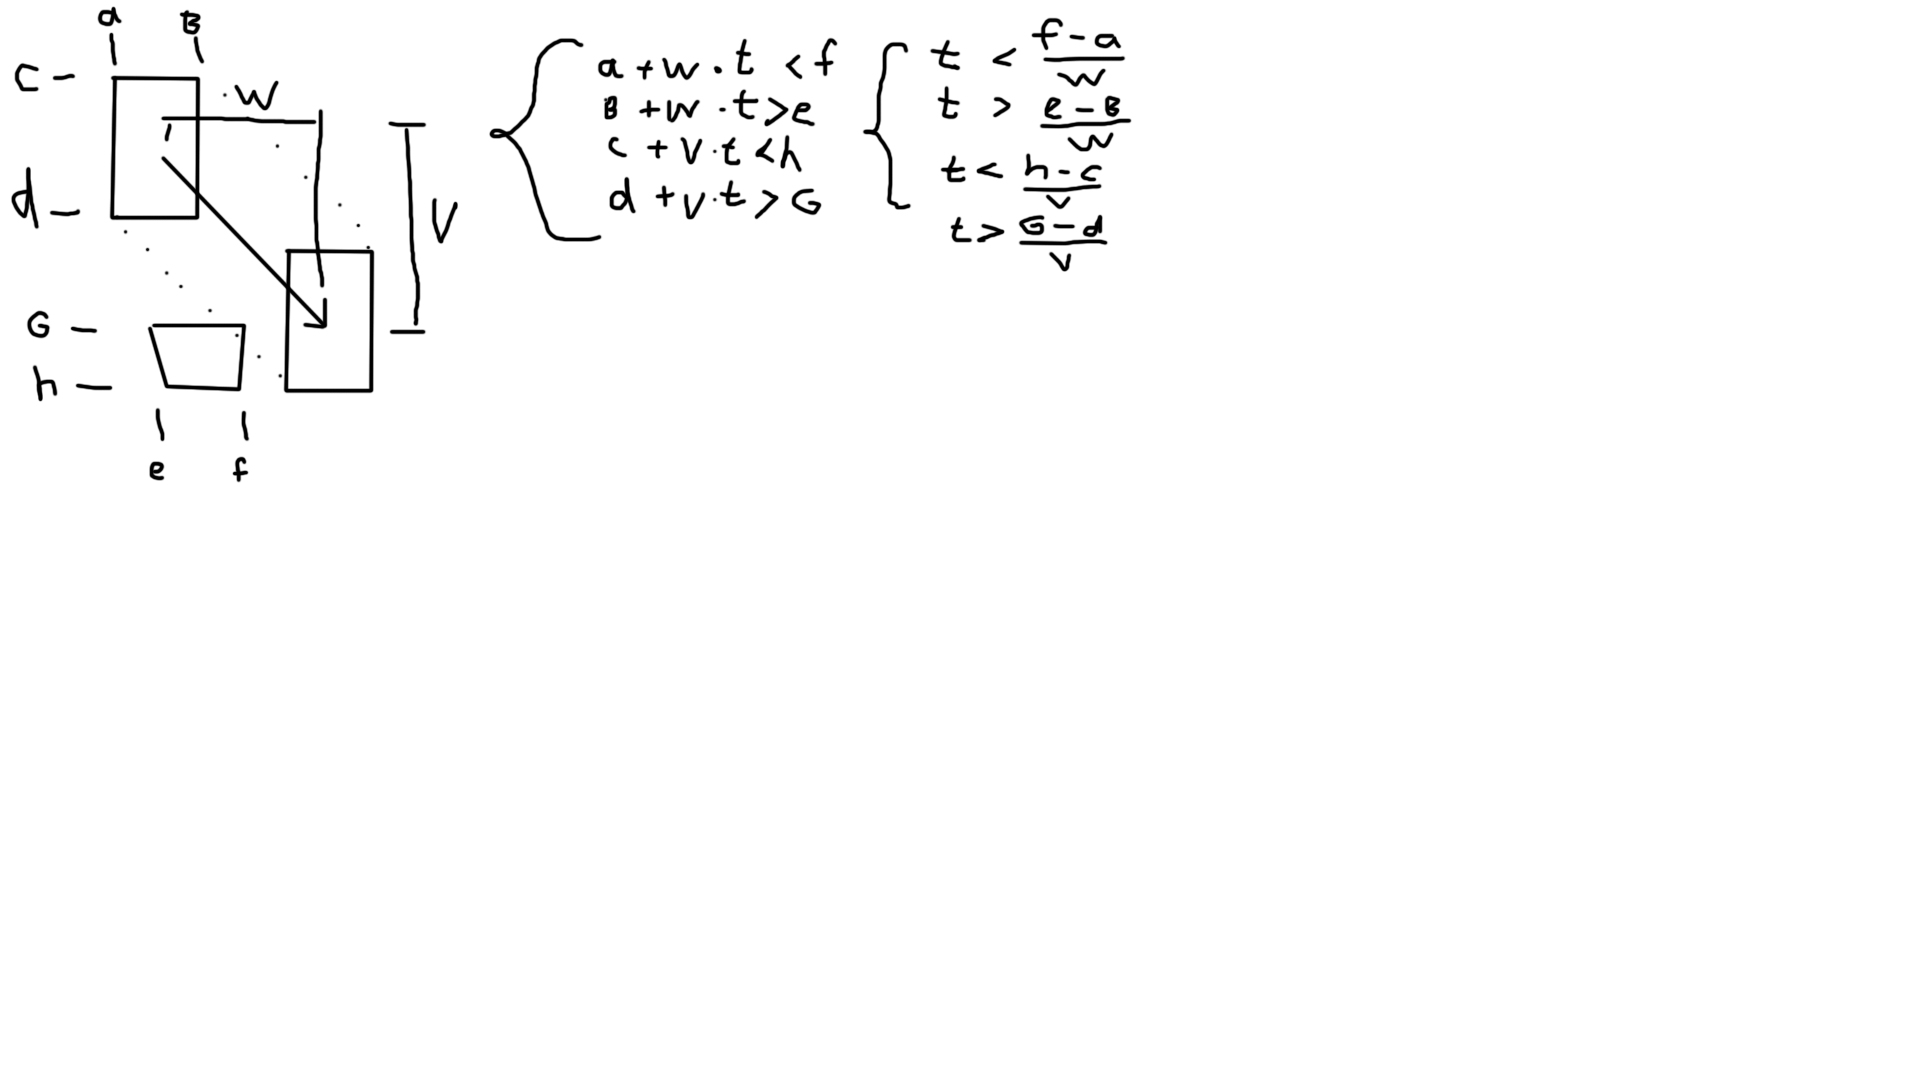 a B
C -
W
d -
V
G -
h -
e f
a + w · t < f
B + w · t > e
c + v · t < h
d + v · t > G
t < (f - a) / w
t > (e - B) / w
t < (h - c) / v
t > (G - d) / v